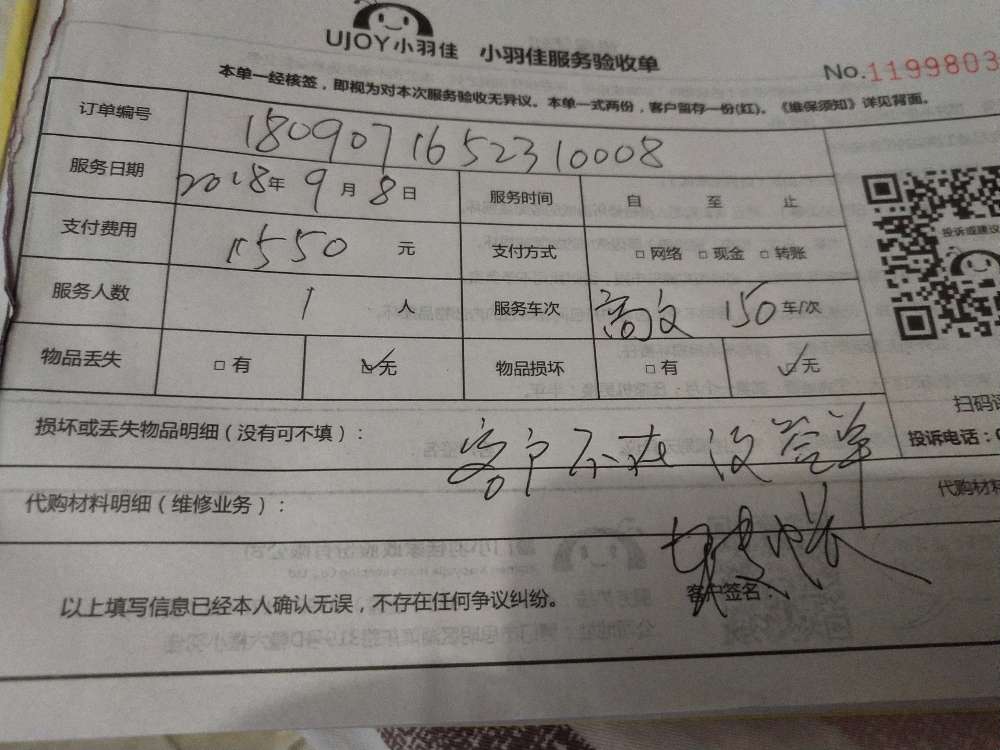 UJOY小羽佳 小羽佳服务验收单
No.1199803
本单一经核签，即视为对本次服务验收无异议。本单一式两份，客户留存一份(红)。《维保须知》详见背面。
订单编号 1809071652310008
服务日期 2018年9月8日 服务时间 自 至 止
支付费用 550 元 支付方式 □网络 □现金 □转账
投诉或建议
服务人数 1 人 服务车次 150 车/次
物品丢失 □有 ☑无 物品损坏 □有 ☑无
扫码
损坏或丢失物品明细（没有可不填）： 客户不在没签单
投诉电话：
代购材料明细（维修业务）：
代购材料
以上填写信息已经本人确认无误，不存在任何争议纠纷。 客户签名：